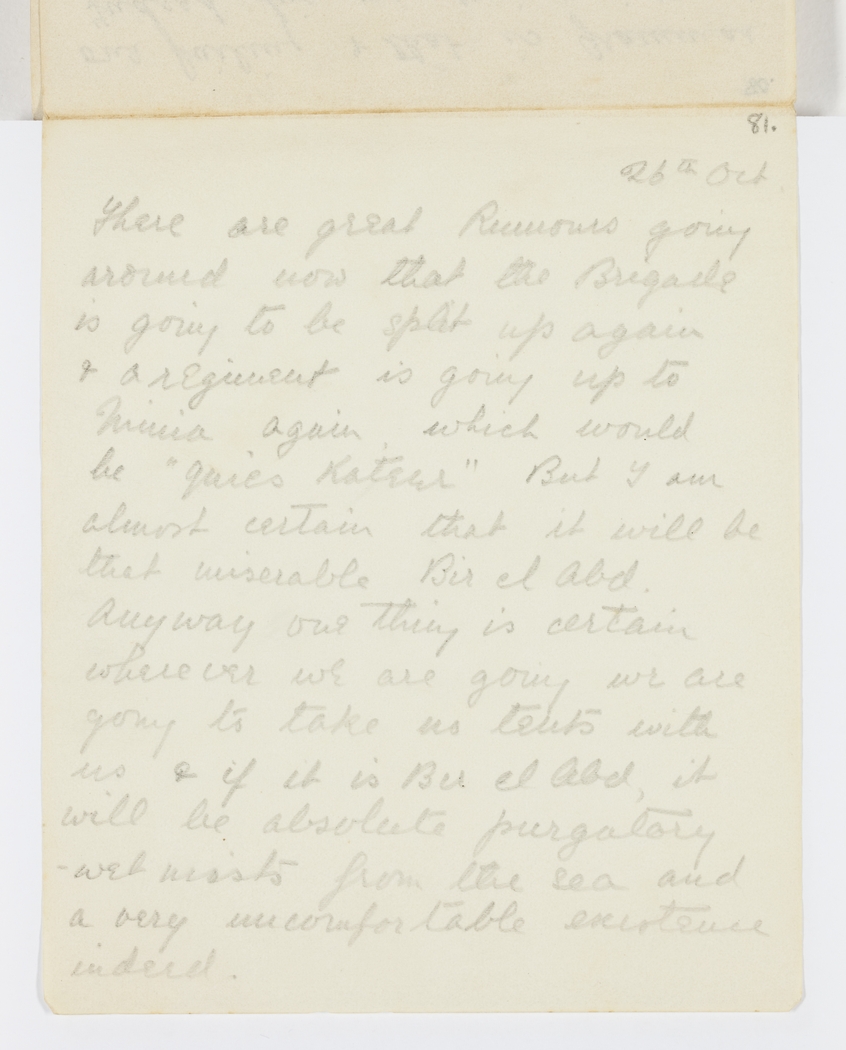 81.
26th Oct
There are great Rumours going
around now that the Brigade
is going to be split up again
& a regiment is going up to
Minia again, which would
be "quies Kateer" But I am
almost certain that it will be
that miserable Bir el Abd.
Anyway one thing is certain
wherever we are going we are
going to take no tents with
us & if it is Bir el Abd, it
will be absolute purgatory
- wet mists from the sea and
a very uncomfortable existence
indeed.